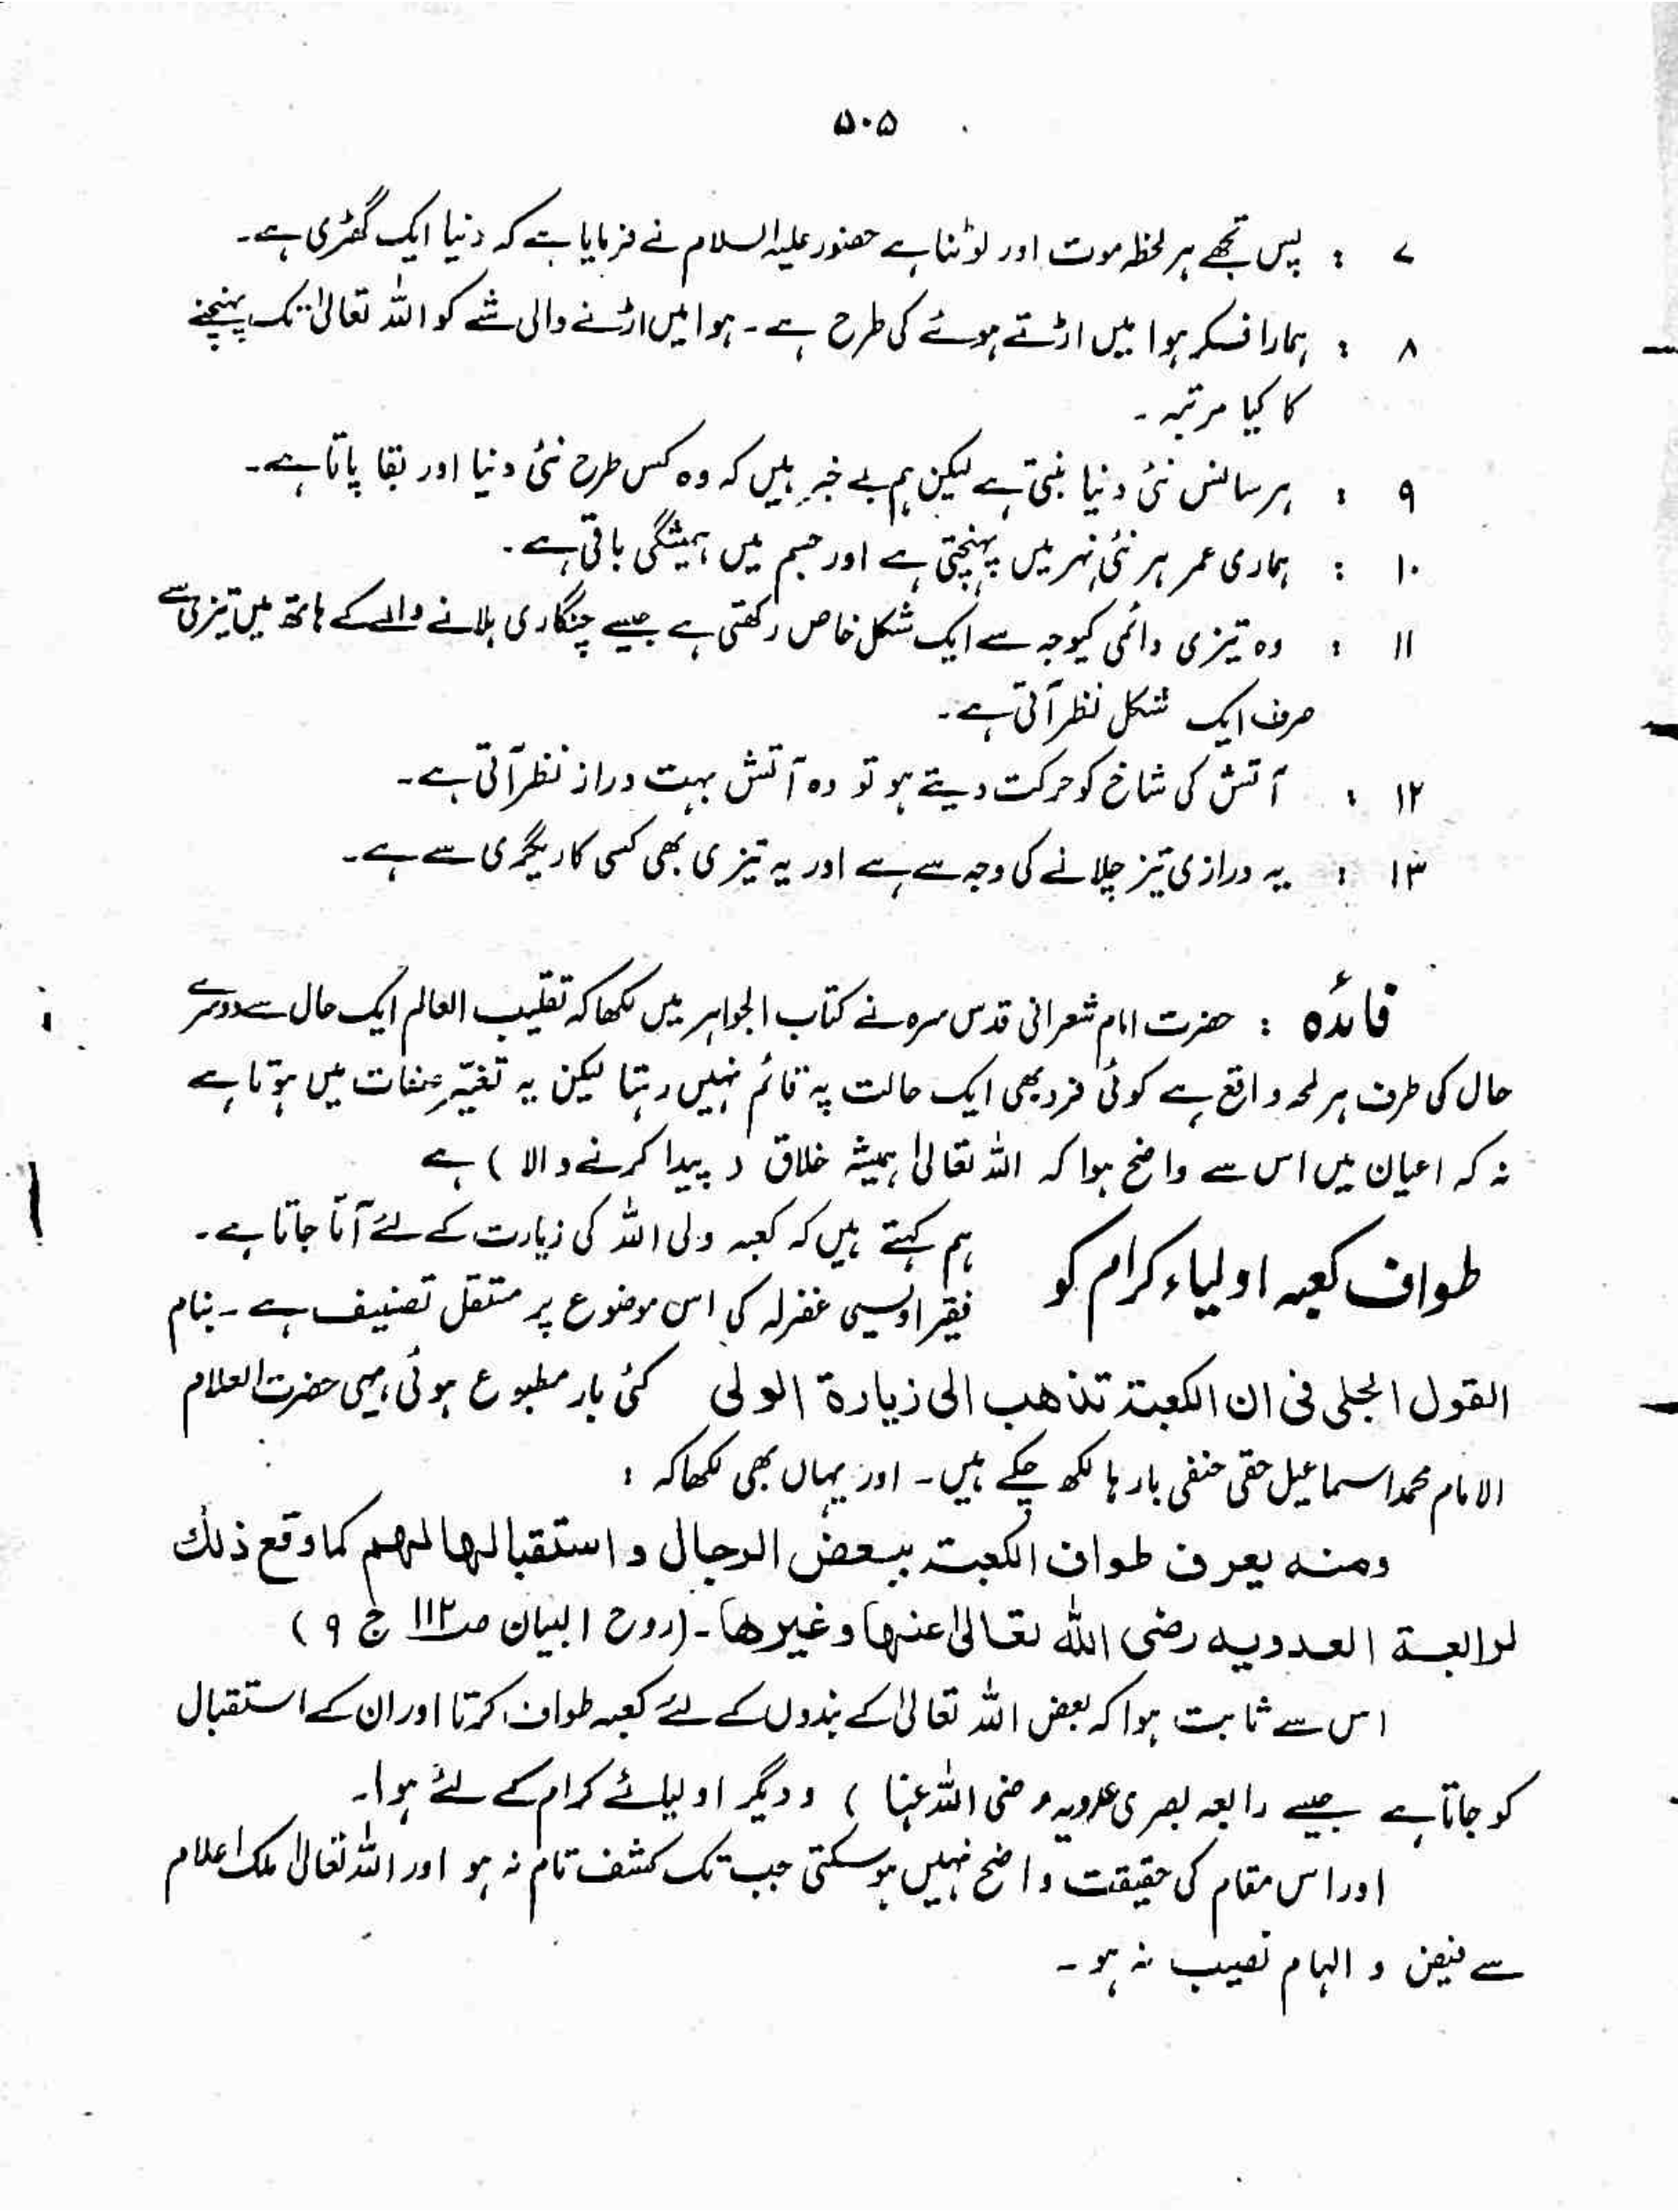 ۵۰۵
۷ : پس تجھے ہر لحظہ موت اور لوٹنا ہے حضور علیہ السلام نے فرمایا ہے کہ دنیا ایک گھڑی ہے۔
۸ : ہمارا فکر ہوا میں اڑتے ہوئے کی طرح ہے ۔ ہوا میں اڑنے والی شے کو اللہ تعالیٰ تک پہنچنے
کا کیا مرتبہ ۔
۹ : ہر سانس نئی دنیا بنتی ہے لیکن ہم بے خبر ہیں کہ وہ کس طرح نئی دنیا اور بقا پاتا ہے۔
۱۰ : ہماری عمر ہر نئی نہر میں پہنچتی ہے اور جسم میں ہمیشگی باقی ہے ۔
۱۱ : وہ تیزی دائمی کیوجہ سے ایک شکل خاص رکھتی ہے جیسے چنگاری ہلانے والے کے ہاتھ میں تیزی سے
صرف ایک شکل نظر آتی ہے۔
۱۲ : آتش کی شاخ کو حرکت دیتے ہو تو وہ آتش بہت دراز نظر آتی ہے۔
۱۳ : یہ درازی تیز چلانے کی وجہ سے ہے اور یہ تیزی بھی کسی کاریگری سے ہے۔
فائدہ : حضرت امام شعرانی قدس سرہ نے کتاب الجواہر میں لکھا کہ تقلیب العالم ایک حال سے دوسرے
حال کی طرف ہر لمحہ واقع ہے کوئی فرد بھی ایک حالت پہ قائم نہیں رہتا لیکن یہ تغیّر صفات میں ہوتا ہے
نہ کہ اعیان میں اس سے واضح ہوا کہ اللہ تعالیٰ ہمیشہ خلاق ( پیدا کرنے والا ) ہے
طواف کعبہ اولیاء کرام کو
ہم کہتے ہیں کہ کعبہ ولی اللہ کی زیارت کے لئے آتا جاتا ہے۔
فقیر اویسی غفرلہ کی اس موضوع پر مستقل تصنیف ہے ۔ بنام
القول الجلی فی ان الکعبۃ تذھب الی زیارۃ الولی کئی بار مطبوع ہوئی، یہی حضرت العلام
الامام محمد اسماعیل حقی حنفی بارہا لکھ چکے ہیں ۔ اور یہاں بھی لکھا کہ :
ومنہ یعرف طواف الکعبۃ ببعض الرجال و استقبالہا لہم کما وقع ذلک
لرابعۃ العدویہ رضی اللہ تعالیٰ عنہا وغیرھا ۔ (روح البیان صـ ۱۱۲ ج ۹ )
اس سے ثابت ہوا کہ بعض اللہ تعالیٰ کے بندوں کے لئے کعبہ طواف کرتا اور ان کے استقبال
کو جاتا ہے جیسے رابعہ بصری عدویہ رضی اللہ عنہا ) و دیگر اولیائے کرام کے لئے ہوا۔
اور اس مقام کی حقیقت واضح نہیں ہوسکتی جب تک کشف تام نہ ہو اور اللہ تعالیٰ ملک اعلام
سے فیض و الہام نصیب نہ ہو ۔